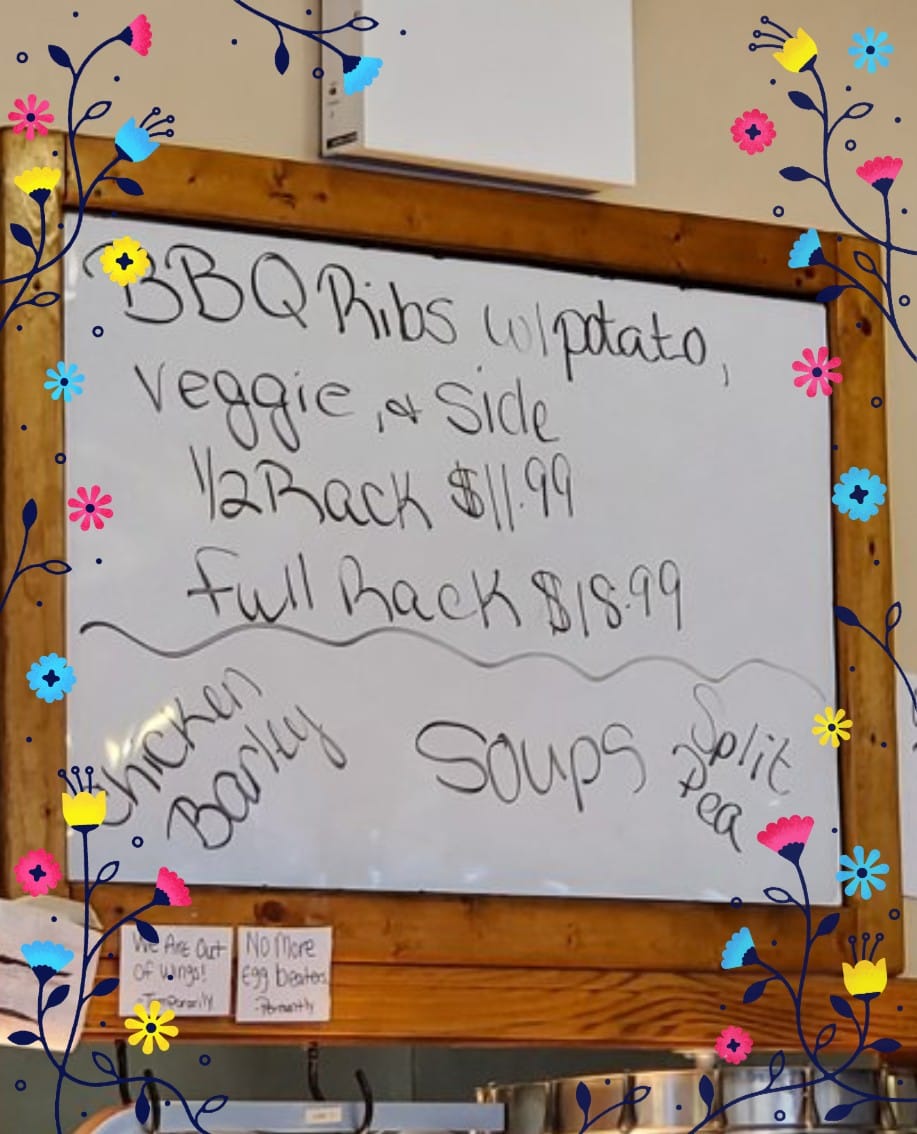 BBQ Ribs w/potato,
Veggie, & Side
1/2 Rack $11.99
full Rack $18.99
Chicken
Barley
Soups
Split
Pea
We Are Out
Of Wings!
-Temporarily
No More
Egg beaters